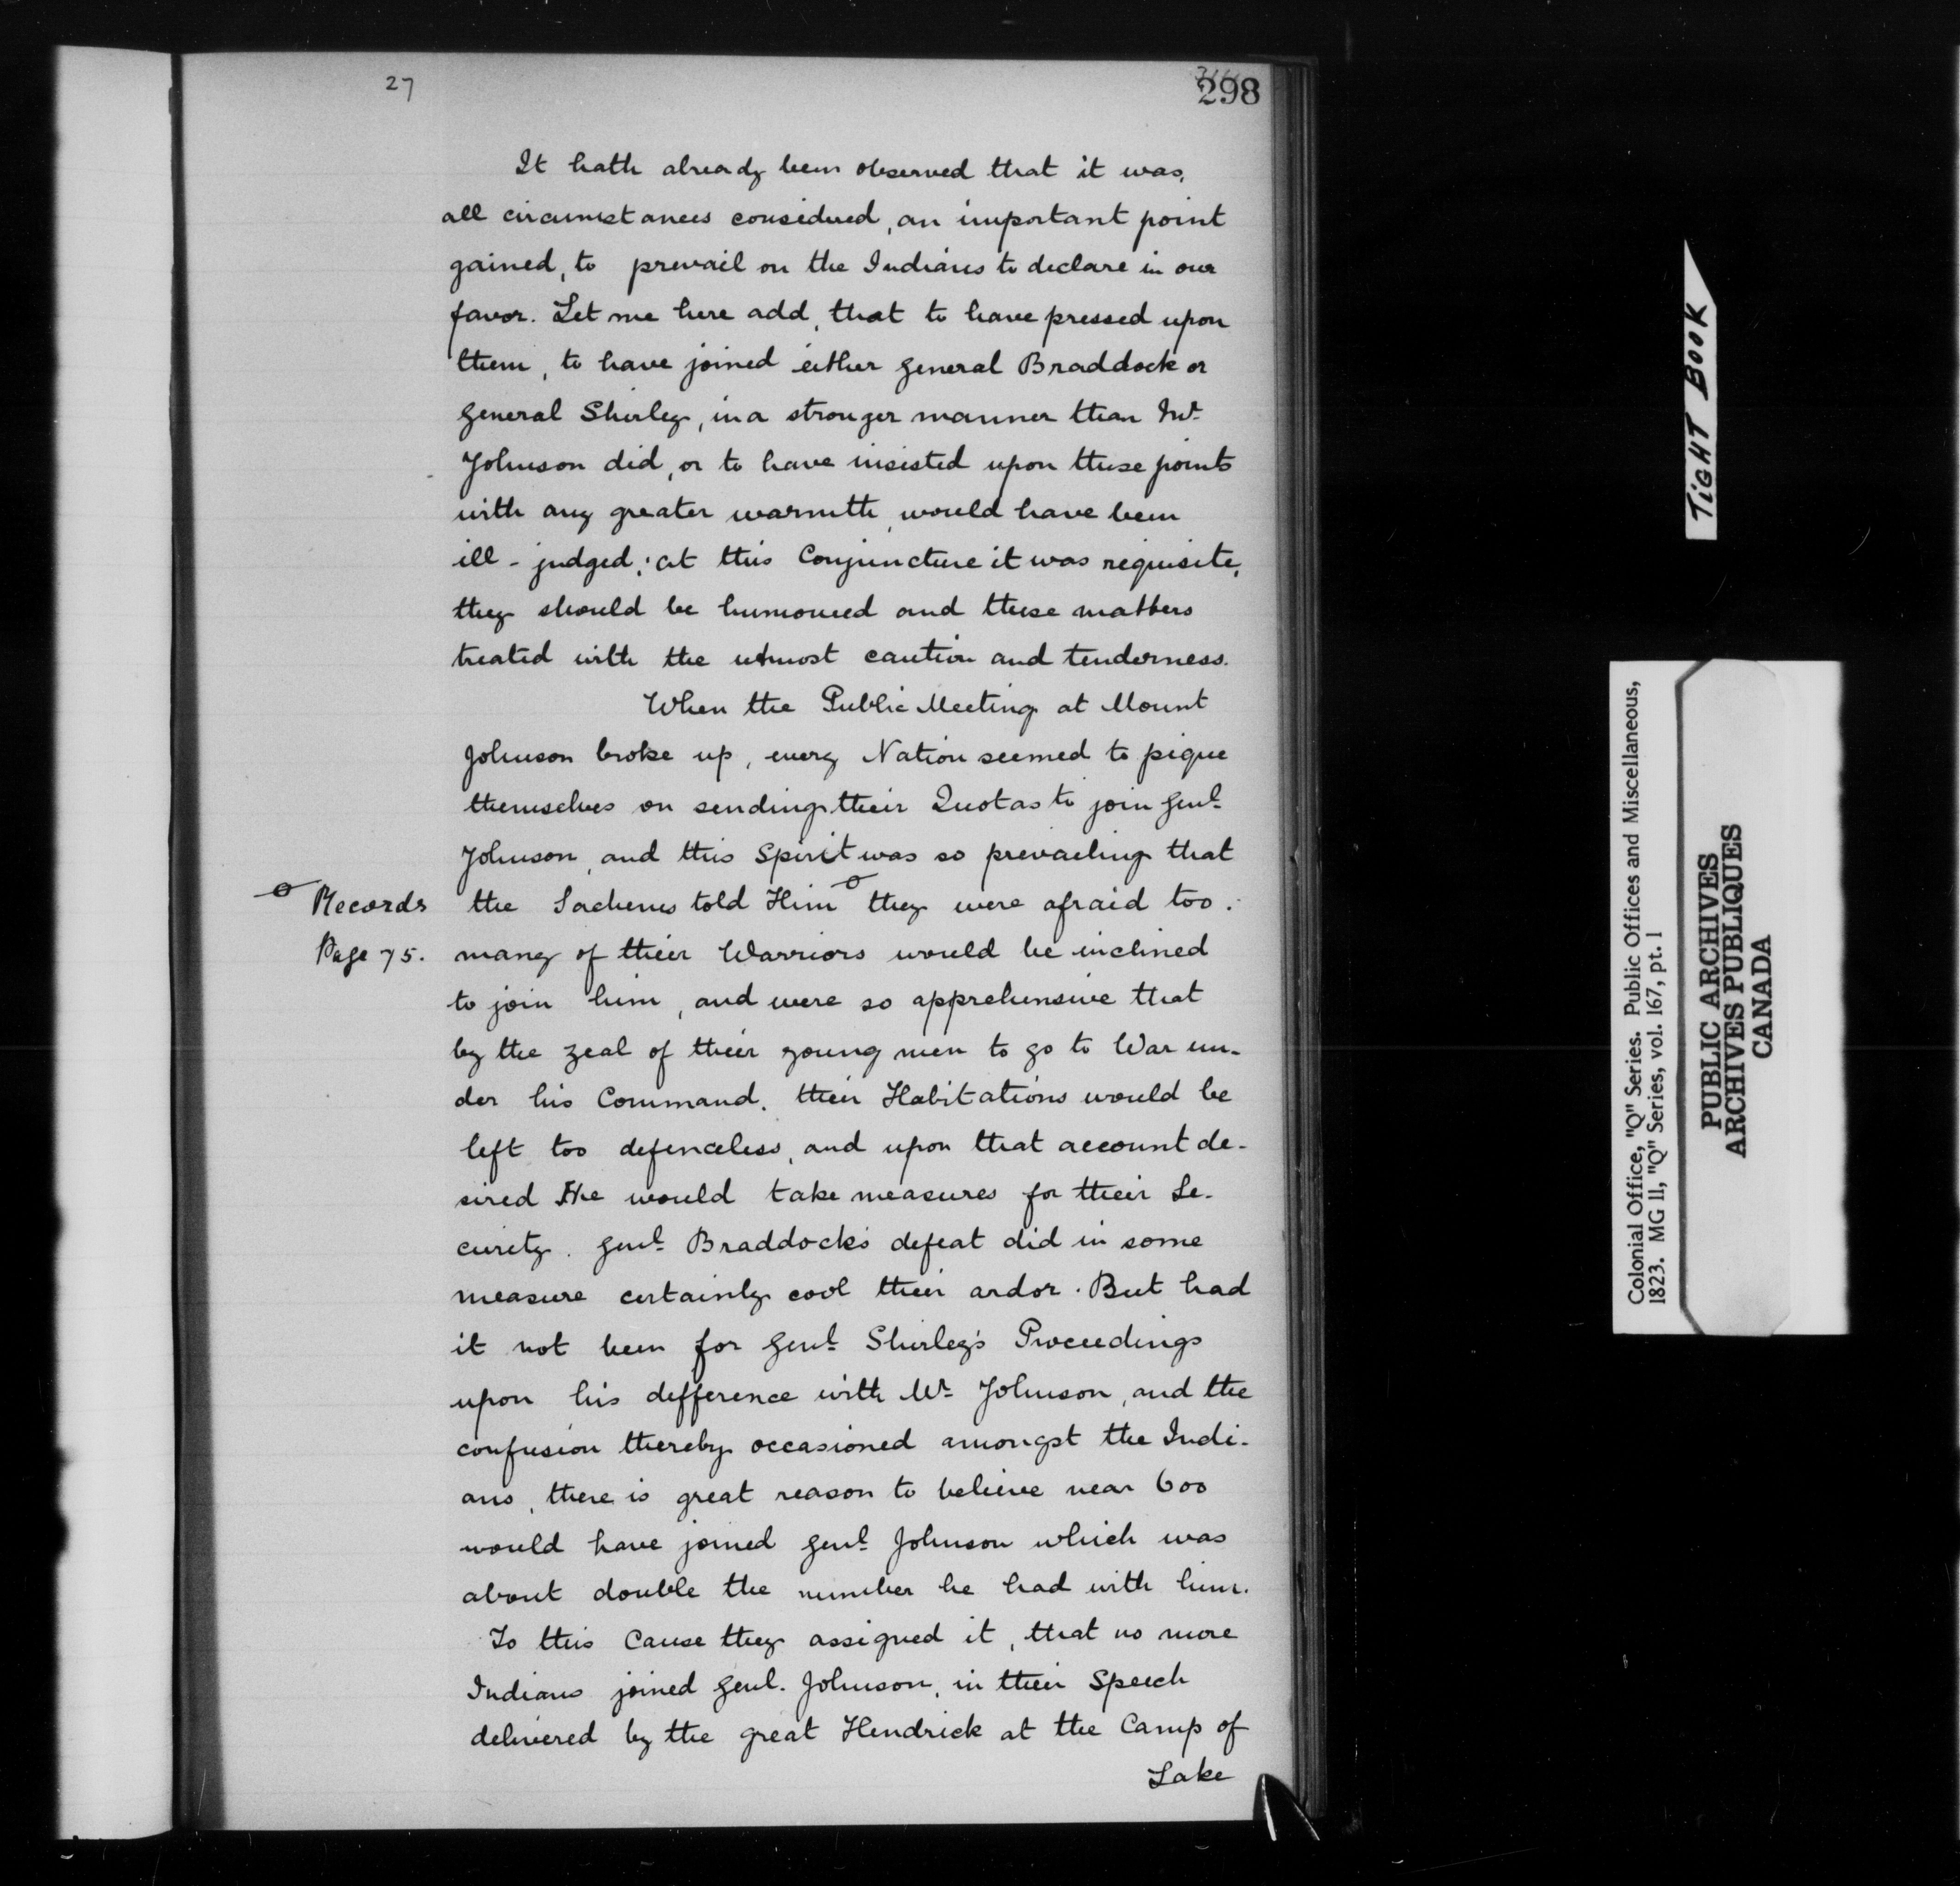 27
298
It hath already been observed that it was,
all circumstances considered, an important point
gained, to prevail on the Indians to declare in our
favor. Let me here add, that to have pressed upon
them, to have joined either General Braddock or
General Shirley, in a stronger manner than Mr.
Johnson did, or to have insisted upon these points
with any greater warmth, would have been
ill-judged; at this Conjuncture it was requisite,
they should be humoured and these matters
treated with the utmost caution and tenderness.
When the Public Meeting at Mount
Johnson broke up, every Nation seemed to pique
themselves on sending their Quotas to join Genl.
Johnson, and this Spirit was so prevailing that
the Sachems told Him they were afraid too
many of their Warriors would be inclined
to join him, and were so apprehensive that
by the zeal of their young men to go to War un-
der his Command, their Habitations would be
left too defenceless, and upon that account de-
sired He would take measures for their Se-
curity. Genl. Braddock's defeat did in some
measure certainly cool their ardor. But had
it not been for Genl. Shirley's Proceedings
upon his defference with Mr. Johnson, and the
confusion thereby occasioned amongst the Indi-
ans, there is great reason to believe near 600
would have joined Genl. Johnson which was
about double the number he had with him.
To this Cause they assigned it, that no more
Indians joined Genl. Johnson, in their Speech
delivered by the great Hendrick at the Camp of
Lake
Records
Page 75.
TIGHT BOOK
Colonial Office, "Q" Series. Public Offices and Miscellaneous,
1823. MG 11, "Q" Series, vol. 167, pt. 1
PUBLIC ARCHIVES
ARCHIVES PUBLIQUES
CANADA